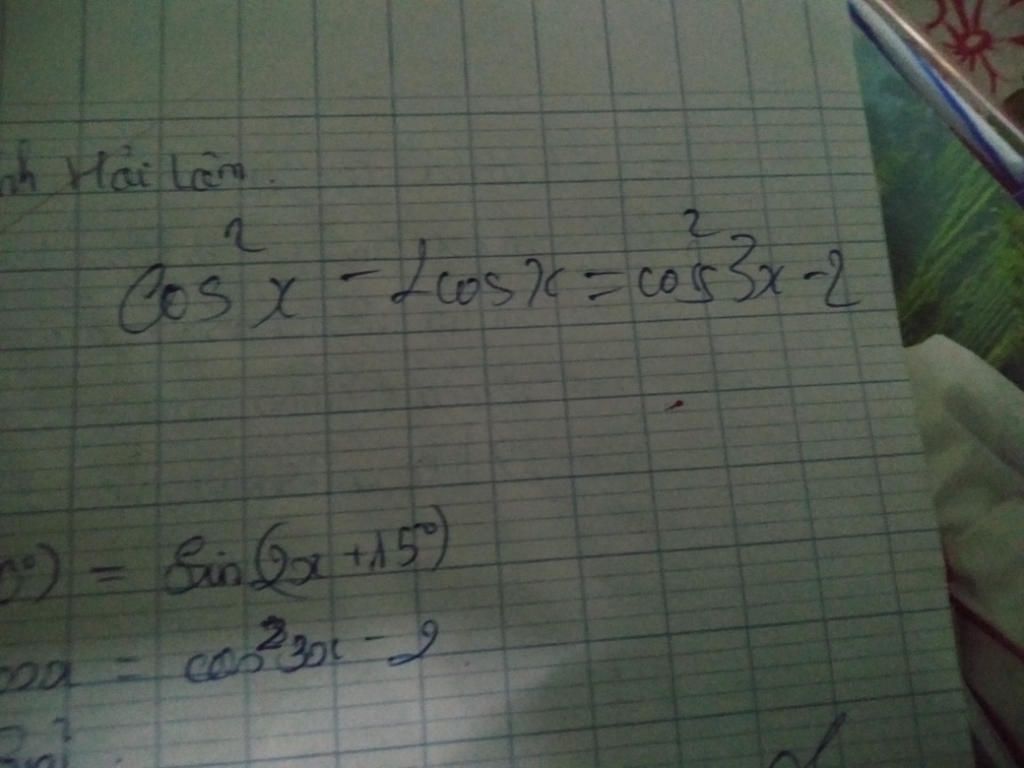 Hải Lâm.
cos²x - 2cosx = cos²3x - 2
= Sin(2x + 15°)
= cos²3x - 2